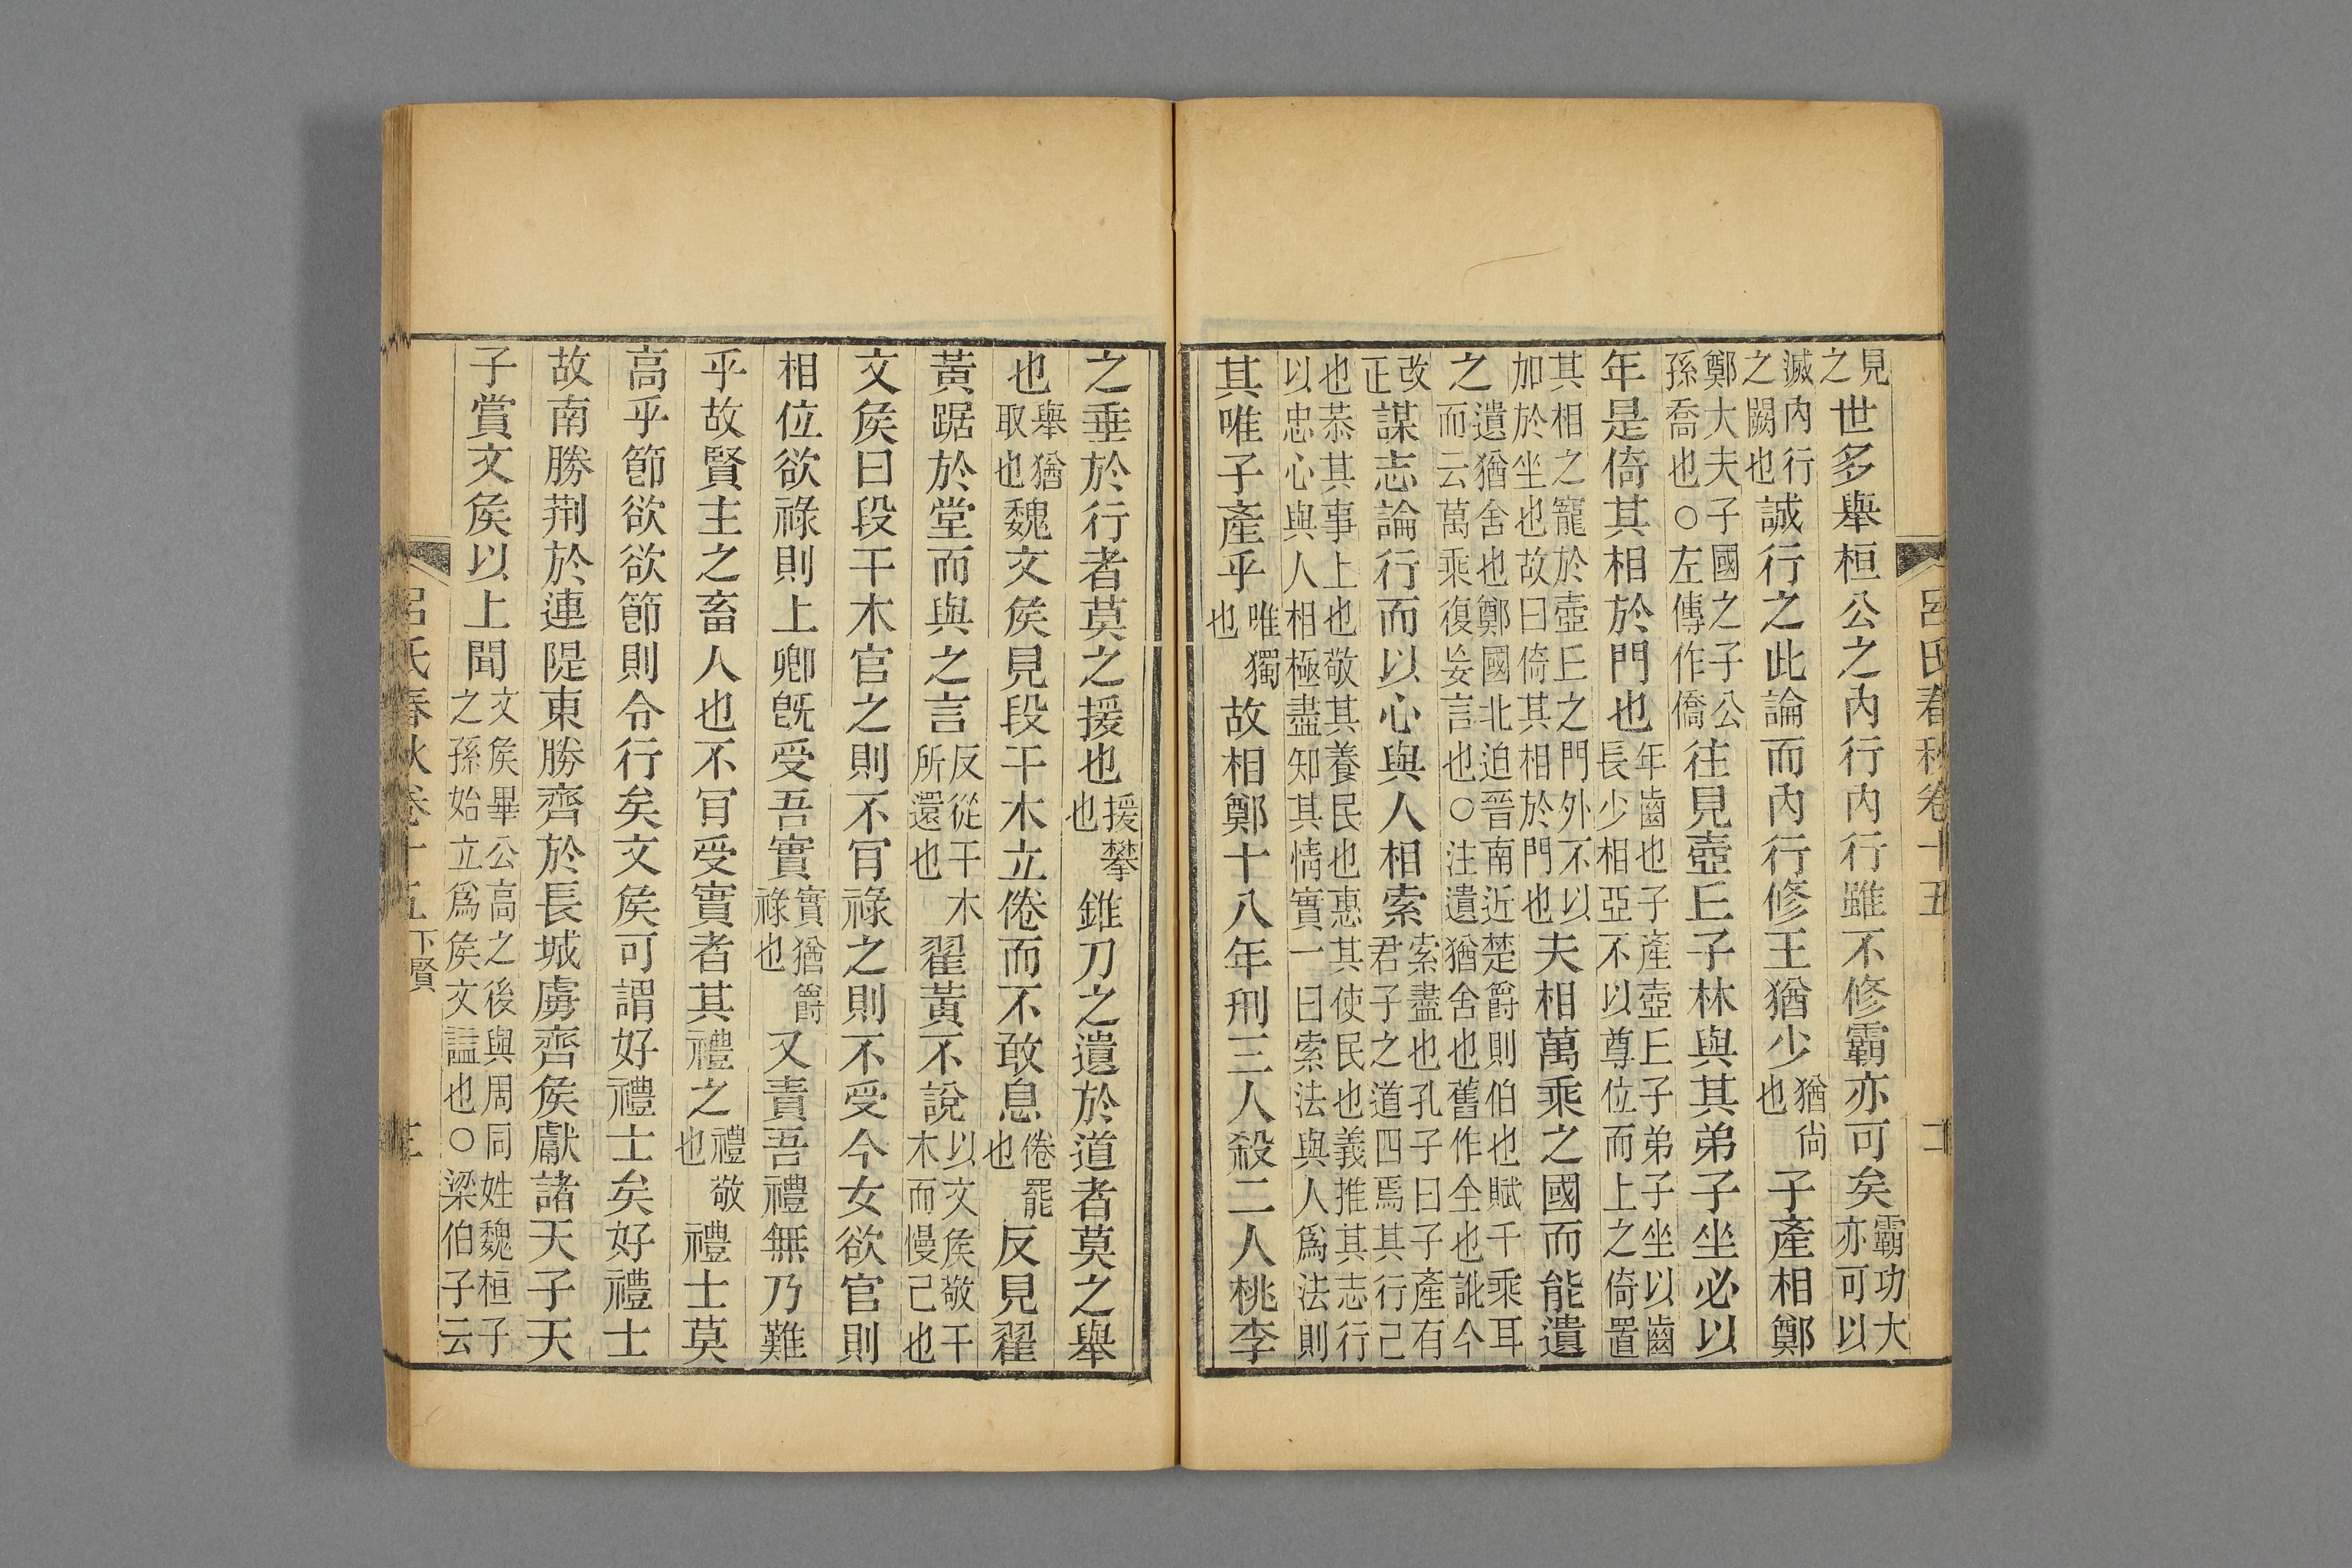 呂氏春秋卷十五 二
見之世多舉桓公之內行內行雖不修霸亦可矣霸功大亦可以
滅內行之闕也誠行之此論而內行修王猶少猶尙也子產相鄭
鄭大夫子國之子公孫喬也○左傳作僑往見壺丘子林與其弟子坐必以
年是倚其相於門也年齒也子產壺丘子弟子坐以齒長少相亞不以尊位而上之倚置
其相之寵於壺丘之門外不以加於坐也故曰倚其相於門也夫相萬乘之國而能遺
之遺猶舍也鄭國北迫晉南近楚爵則伯也賦千乘耳而云萬乘復妄言也○注遺猶舍也舊作全也訛今
改正謀志論行而以心與人相索索盡也孔子曰子產有君子之道四焉其行己
也恭其事上也敬其養民也惠其使民也義推其志行以忠心與人相極盡知其情實一曰索法與人爲法則
其唯子產乎唯獨也故相鄭十八年刑三人殺二人桃李
之垂於行者莫之援也援攀也錐刀之遺於道者莫之舉
也舉猶取也魏文矦見段干木立倦而不敢息倦罷也反見翟
黃踞於堂而與之言反從干木所還也翟黃不說以文矦敬干木而慢己也
文矦曰段干木官之則不肎祿之則不受今女欲官則
相位欲祿則上卿旣受吾實實猶爵祿也又責吾禮無乃難
乎故賢主之畜人也不肎受實者其禮之禮敬也禮士莫
高乎節欲欲節則令行矣文矦可謂好禮士矣好禮士
故南勝荆於連隄東勝齊於長城虜齊矦獻諸天子天
子賞文矦以上聞文矦畢公高之後與周同姓魏桓子之孫始立爲矦文諡也○梁伯子云
呂氏春秋卷十五 下賢 三